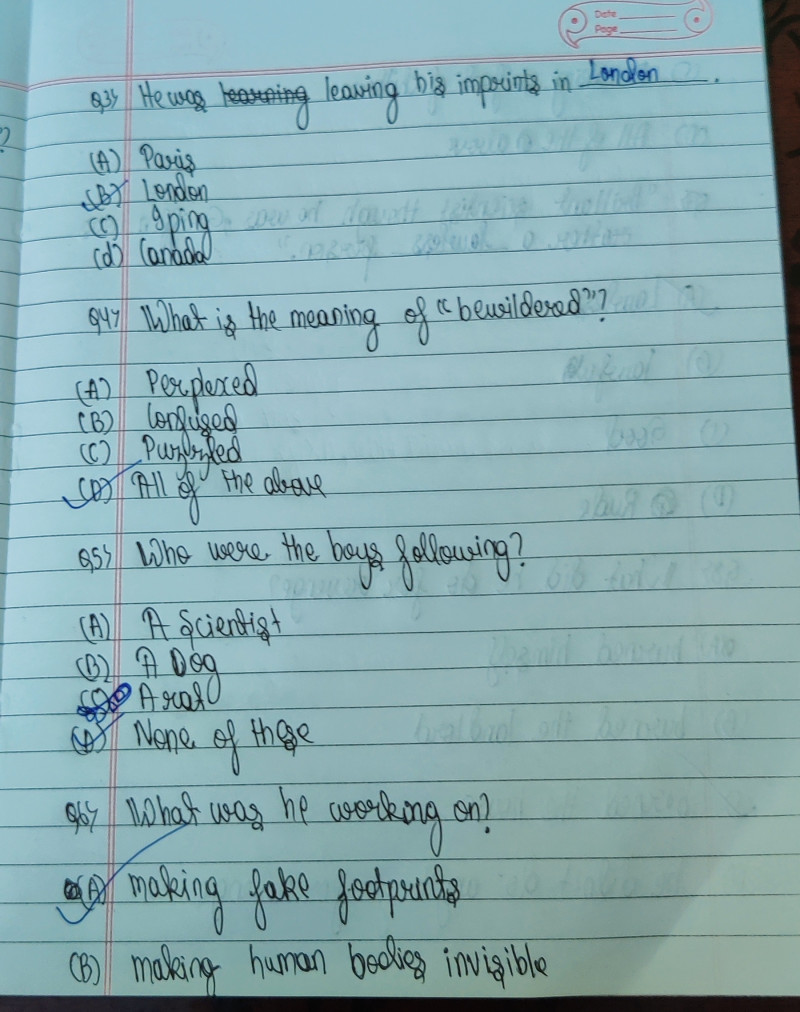 Date
Page
Q3> He was learning leaving his imprints in London.
(A) Paris
(B) London
(C) Iping
(d) Canada
Q4> What is the meaning of "bewildered"?
(A) Perplexed
(B) Confused
(C) Puzzled
(D) All of the above
Q5> Who were the boys following?
(A) A Scientist
(B) A Dog
(C) A rat
(D) None of these
Q6> What was he working on?
(A) making fake footprints
(B) making human bodies invisible